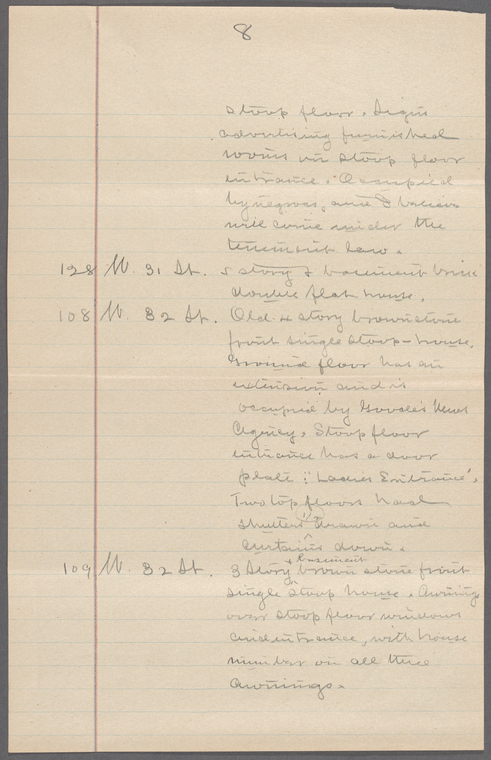 8
stoop floor. Sign
advertising furnished
rooms on stoop floor
entrance. Occupied
by negroes, and I believe
will come under the
tenement law.
128 W. 31 St. 5 story & basement brick
double flat house.
108 W. 32 St. Old 4 story brownstone
front single stoop-house.
Ground floor has an
extension and is
occupied by Goode's News
Agency. Stoop floor
entrance has a door
plate: "Ladies Entrance".
Two top floors had
shutters drawn and
curtains down.
109 W. 32 St. 3 story & basement brown stone front
single stoop house. Awning
over stoop floor windows
and entrance, with house
number on all three
awnings.